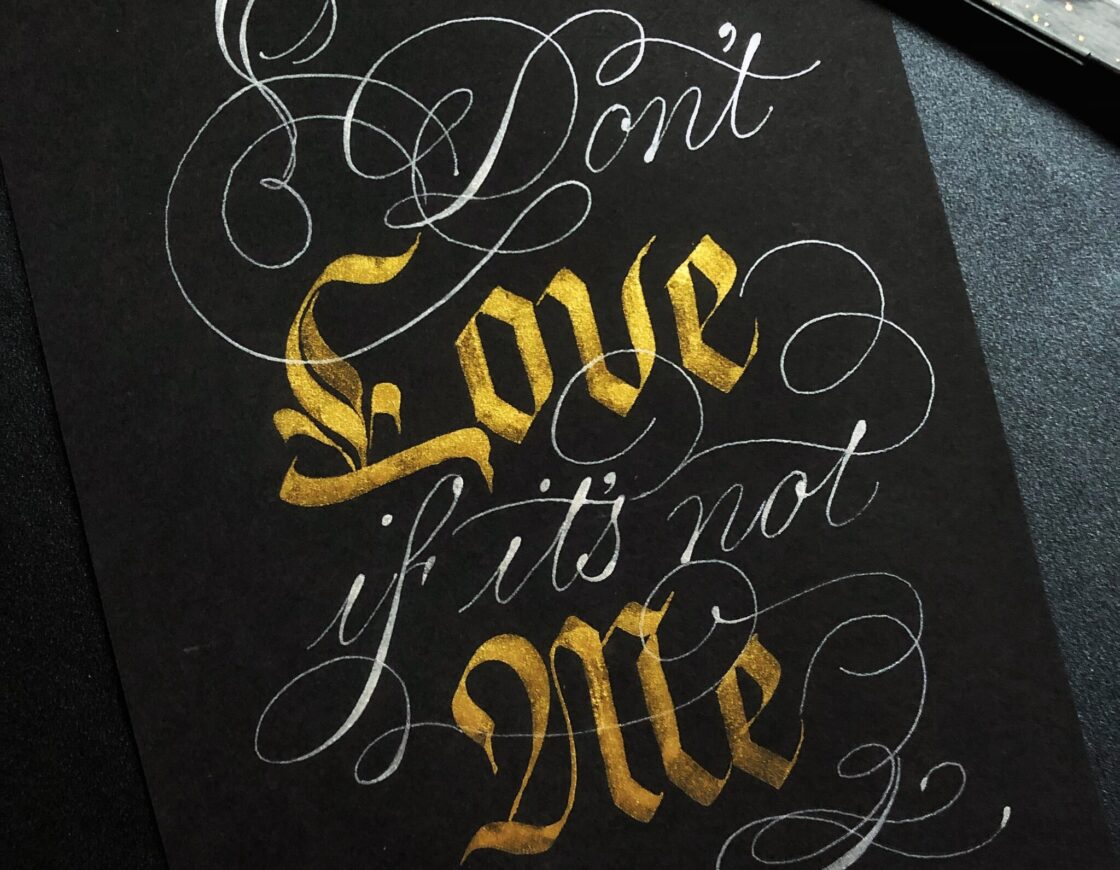 Don't
Love
if it's not
Me